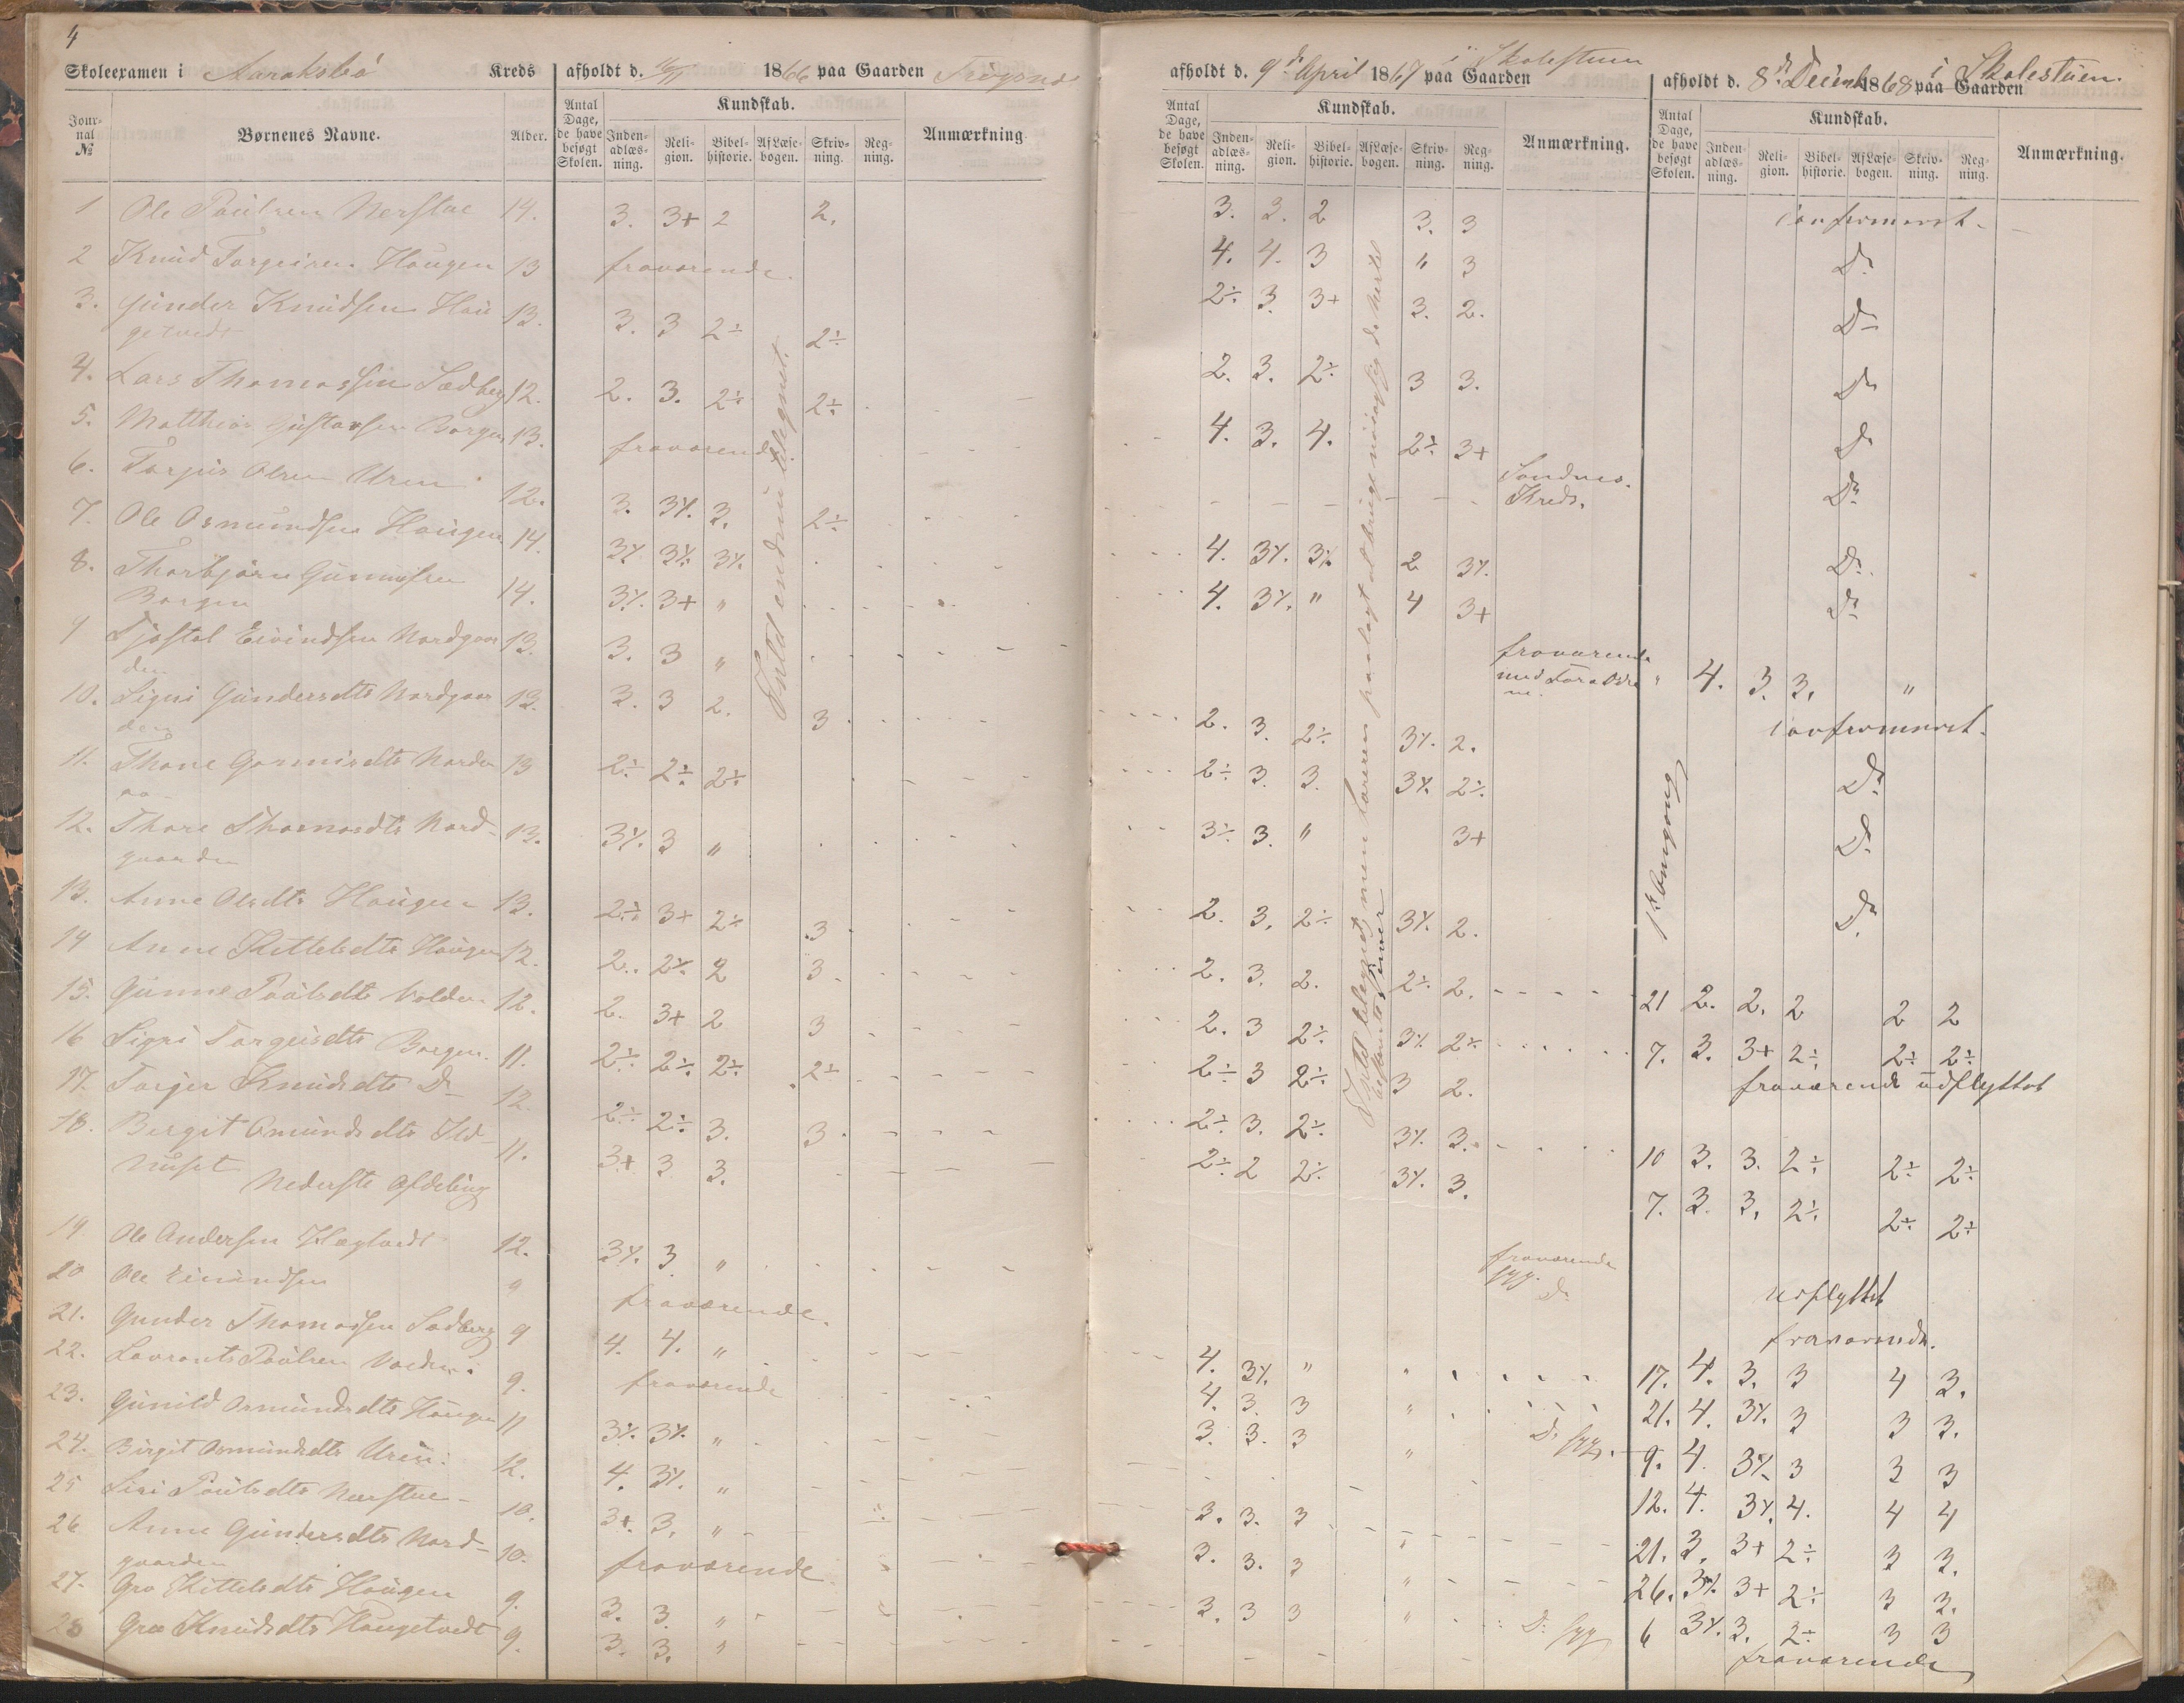 4
Skoleexamen i Aaraksbø Kreds afholdt d. 1866 paa Gaarden Trøgsnæs
Jour-nal № Børnenes Navne. Alder. Antal Dage, de have besøgt Skolen. Kundskab. Inden-adlæs-ning. Reli-gion. Bibel-historie. Af Læse-bogen. Skriv-ning. Reg-ning. Anmærkning.
1 Ole Paulsen Nerstue 14. 3. 3+ 2 2.
2 Knud Torgeirsen Haugen 13 fraværende.
3. Gunder Knudsen Hau 13. 3. 3 2÷ 2÷
getvedt
4. Lars Thomassen Sædberg 12. 2. 3. 2÷ 2÷
5. Matthias Gustavsen Borgen 13. fraværende
6. Torjus Olsen Uren 12. 3. 3⁒ 3. 2÷
7. Ole Osmundsen Haugen 14. 3⁒ 3⁒ 3⁒
8. Thorbjørn Gunnufsen 14. 3⁒ 3+ "
Borgen
9 Tjøstol Eivindsen Nordgaar 13. 3. 3 "
den
10. Signi Gundersdtr Nordgaar 13. 3. 3 2. 3
den
11. Thone Gunnirsdtr Norden 13 2÷ 2÷ 2÷
12. Thore Thomasdtr Nord- 13. 3⁒ 3 "
gaarden
13. Anne Olsdtr Haugen 13. 2÷ 3+ 2÷ 3
14 Anne Kittelsdtr Haugen 12. 2. 2⁒ 2 3
15. Gunne Paulsdtr Volden 12. 2. 3+ 2 3
16 Signi Torgeisdtr Borgen. 11. 2÷ 2÷ 2÷ 2÷
17. Torjer Knudsdtr Do 12 2÷ 2÷ 3. 3
18. Bergit Omundsdtr Ild- 11. 3+ 3 3.
huset
Nederste Afdeling
19. Ole Andersen Hægtvedt 12. 3⁒ 3. "
20 Ole Eivindsen 9 fraværende.
21. Gunder Thomassen Sædberg 9 4. 4. "
22. Lavrants Paulsen Volden. 9. fraværende
23. Gunild Osmundsdtr Haugen 11 3⁒ 3⁒ "
24. Birgit Osmundsdtr Uren. 12. 4. 3⁒ "
25 Siri Paulsdtr Nerstue 10. 3+ 3. "
26 Anne Gundersdtr Nord- 10. fraværende
gaarden
27. Gro Kittelsdtr Haugen 9. 3. 3. "
28 Gro Knudsdtr Haugetvedt 9. 3. 3. "
Intet endnu tilegnet.
afholdt d. 9d April 1867 paa Gaarden i Skolestuen
Antal Dage, de have besøgt Skolen. Kundskab. Inden-adlæs-ning. Reli-gion. Bibel-historie. Af Læse-bogen. Skriv-ning. Reg-ning. Anmærkning.
3. 3. 2 3. 3
4. 4. 3 " 3
2÷ 3. 3+ 3. 2.
2. 3. 2÷ 3 3.
4. 3. 4. 2÷ 3+
Sandnes.
Kreds.
4. 3⁒ 3⁒ 2 3⁒
4. 3⁒ " 4 3+
fraværende
med Forældre
ne.
2. 3. 2÷ 3⁒ 2.
2÷ 3 3. 3⁒ 2÷
3÷ 3. " 3+
2. 3. 2÷ 3⁒ 2.
2. 3. 2. 2÷ 2.
2. 3 2÷ 3⁒ 2÷
2÷ 3 2÷ 3 2.
2÷ 3. 2÷ 3⁒ 3.
2÷ 2 2÷ 3⁒ 3.
fraværende
syg.
Do
4. 3⁒ " "
4. 3. 3 "
3. 3. 3 " Do syg.
3. 3. 3
3. 3. 3 "
3. 3 3 " Do syg
afholdt d. 8d Decemb 1868 paa Gaarden i Skolestuen.
Antal Dage, de have besøgt Skolen. Kundskab. Inden-adlæs-ning. Reli-gion. Bibel-historie. Af Læse-bogen. Skriv-ning. Reg-ning. Anmærkning.
confirmeret.
Do
Do
Do
Do
Do
Do
Do
" 4. 3. 3. "
confirmeret.
Do
Do
Do
21 2. 2. 2 2 2
7. 3. 3+ 2÷ 2÷ 2÷
fraværende udflyttet
10 3. 3. 2÷ 2÷ 2÷
7. 3. 3. 2÷ 2÷ 2÷
udflyttet
fraværende.
17. 4. 3. 3 4 3.
21. 4. 3⁒ 3 3 3.
9. 4. 3⁒ 3 3 3
12. 4. 3⁒ 4. 4 4
21. 3. 3+ 2÷ 3 3.
26. 3⁒ 3+ 2÷ 3 3.
6 3⁒ 3. 2÷ 3 3
fraværende